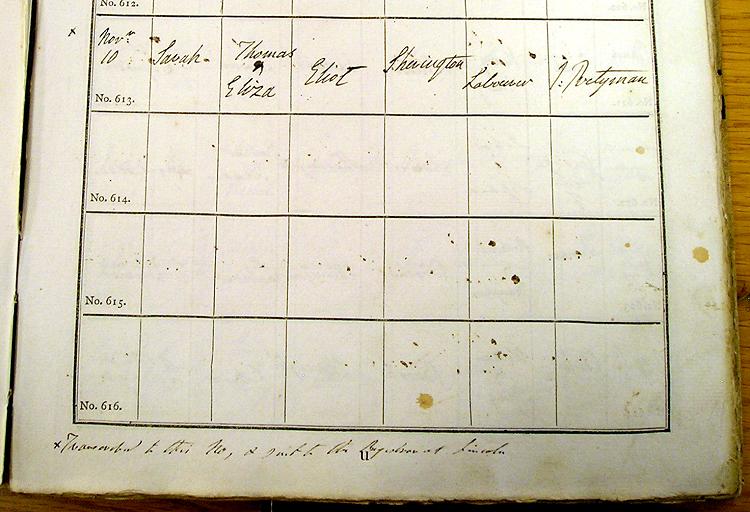 No. 612.
x Novr 10 Sarah Thomas Eliza Eliot Shevington Labourer P. Pretyman
No. 613.
No. 614.
No. 615.
No. 616.
x Transcribed to this No, & sent to the at Lincoln